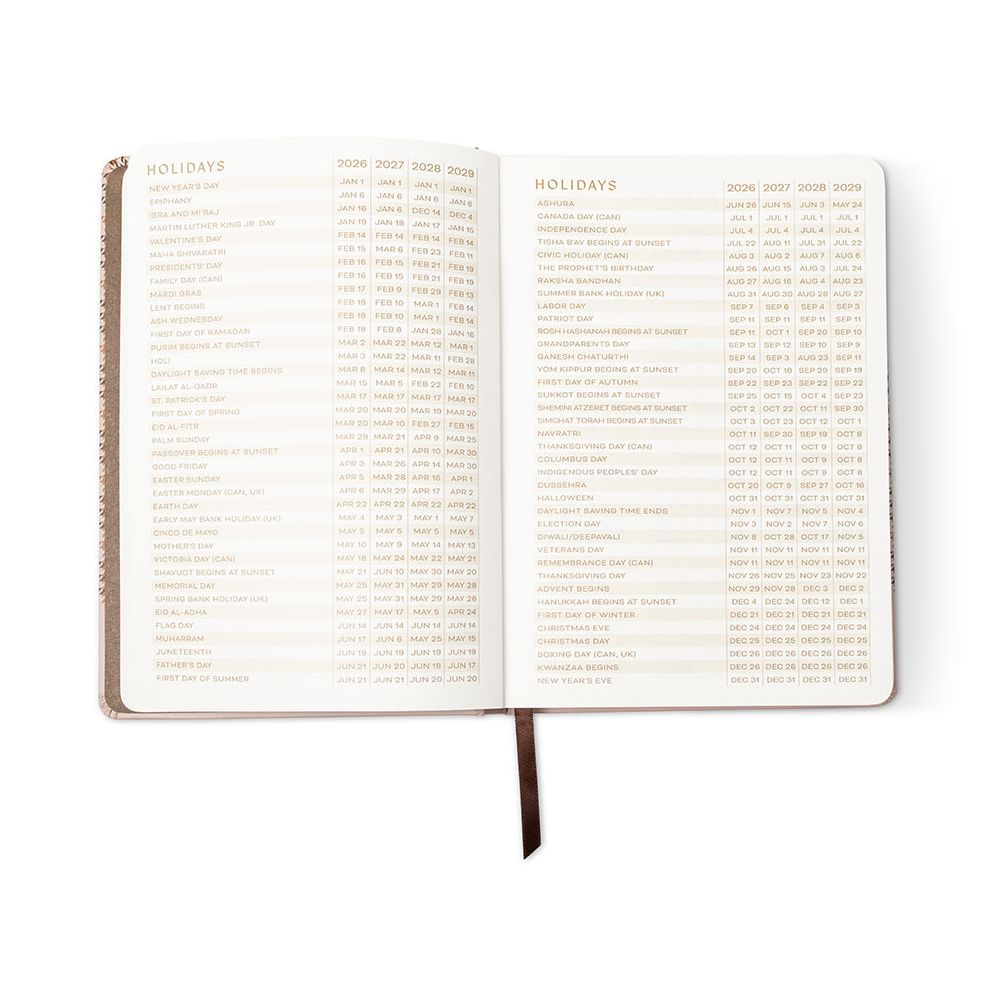 HOLIDAYS 2026 2027 2028 2029
NEW YEAR'S DAY JAN 1 JAN 1 JAN 1 JAN 1
EPIPHANY JAN 6 JAN 6 JAN 6 JAN 6
ISRA AND MI'RAJ JAN 16 JAN 6 DEC 14 DEC 4
MARTIN LUTHER KING JR. DAY JAN 19 JAN 18 JAN 17 JAN 15
VALENTINE'S DAY FEB 14 FEB 14 FEB 14 FEB 14
MAHA SHIVARATRI FEB 15 MAR 6 FEB 23 FEB 11
PRESIDENTS' DAY FEB 16 FEB 15 FEB 21 FEB 19
FAMILY DAY (CAN) FEB 16 FEB 15 FEB 21 FEB 19
MARDI GRAS FEB 17 FEB 9 FEB 29 FEB 13
LENT BEGINS FEB 18 FEB 10 MAR 1 FEB 14
ASH WEDNESDAY FEB 18 FEB 10 MAR 1 FEB 14
FIRST DAY OF RAMADAN FEB 18 FEB 8 JAN 28 JAN 16
PURIM BEGINS AT SUNSET MAR 2 MAR 22 MAR 12 MAR 1
HOLI MAR 3 MAR 22 MAR 11 FEB 28
DAYLIGHT SAVING TIME BEGINS MAR 8 MAR 14 MAR 12 MAR 11
LAILAT AL-QADR MAR 15 MAR 5 FEB 22 FEB 10
ST. PATRICK'S DAY MAR 17 MAR 17 MAR 17 MAR 17
FIRST DAY OF SPRING MAR 20 MAR 20 MAR 19 MAR 20
EID AL-FITR MAR 20
PALM SUNDAY MAR 29 MAR 21 APR 9 MAR 25
PASSOVER BEGINS AT SUNSET APR 1 APR 21 APR 10 MAR 30
GOOD FRIDAY APR 3 MAR 26 APR 14 MAR 30
EASTER SUNDAY APR 5 MAR 28 APR 16 APR 1
EASTER MONDAY (CAN, UK) APR 6 MAR 29 APR 17 APR 2
EARTH DAY APR 22 APR 22 APR 22 APR 22
EARLY MAY BANK HOLIDAY (UK) MAY 4 MAY 3 MAY 1 MAY 7
CINCO DE MAYO MAY 5 MAY 5 MAY 5 MAY 5
MOTHER'S DAY MAY 10 MAY 9 MAY 14 MAY 13
VICTORIA DAY (CAN) MAY 18 MAY 24 MAY 22 MAY 21
SHAVUOT BEGINS AT SUNSET MAY 21 JUN 10 MAY 30 MAY 20
MEMORIAL DAY MAY 25 MAY 31 MAY 29 MAY 28
SPRING BANK HOLIDAY (UK) MAY 25 MAY 31 MAY 29 MAY 28
EID AL-ADHA MAY 27 MAY 17 MAY 5 APR 24
FLAG DAY JUN 14 JUN 14 JUN 14 JUN 14
MUHARRAM JUN 17 JUN 6 MAY 25 MAY 15
JUNETEENTH JUN 19 JUN 19 JUN 19 JUN 19
FATHER'S DAY JUN 21 JUN 20 JUN 18 JUN 17
FIRST DAY OF SUMMER JUN 21 JUN 21 JUN 20 JUN 20
HOLIDAYS 2026 2027 2028 2029
ASHURA JUN 26 JUN 15 JUN 3 MAY 24
CANADA DAY (CAN) JUL 1 JUL 1 JUL 1 JUL 1
INDEPENDENCE DAY JUL 4 JUL 4 JUL 4 JUL 4
TISHA B'AV BEGINS AT SUNSET JUL 22 AUG 11 JUL 31 JUL 22
CIVIC HOLIDAY (CAN) AUG 3 AUG 2 AUG 7 AUG 6
THE PROPHET'S BIRTHDAY AUG 26 AUG 15 AUG 3 JUL 24
RAKSHA BANDHAN AUG 27 AUG 16 AUG 4 AUG 23
SUMMER BANK HOLIDAY (UK) AUG 31 AUG 30 AUG 28 AUG 27
LABOR DAY SEP 7 SEP 6 SEP 4 SEP 3
PATRIOT DAY SEP 11 SEP 11 SEP 11 SEP 11
ROSH HASHANAH BEGINS AT SUNSET SEP 11 OCT 1 SEP 20 SEP 10
GRANDPARENTS DAY SEP 13 SEP 12 SEP 10 SEP 9
GANESH CHATURTHI SEP 14 SEP 3 AUG 23 SEP 11
YOM KIPPUR BEGINS AT SUNSET SEP 20 OCT 10 SEP 29 SEP 18
FIRST DAY OF AUTUMN SEP 22 SEP 22 SEP 22 SEP 22
SUKKOT BEGINS AT SUNSET SEP 25 OCT 15 OCT 4 SEP 23
SHEMINI ATZERET BEGINS AT SUNSET OCT 2 OCT 22 OCT 11 SEP 30
SIMCHAT TORAH BEGINS AT SUNSET OCT 3 OCT 23 OCT 12 OCT 1
NAVRATRI OCT 11 SEP 30 SEP 19 OCT 8
THANKSGIVING DAY (CAN) OCT 12 OCT 11 OCT 9 OCT 8
COLUMBUS DAY OCT 12 OCT 11 OCT 9 OCT 8
INDIGENOUS PEOPLES' DAY OCT 12 OCT 11 OCT 9 OCT 8
DUSSEHRA OCT 20 OCT 9 SEP 27 OCT 16
HALLOWEEN OCT 31 OCT 31 OCT 31 OCT 31
DAYLIGHT SAVING TIME ENDS NOV 1 NOV 7 NOV 5 NOV 4
ELECTION DAY NOV 3 NOV 2 NOV 7 NOV 6
DIWALI/DEEPAVALI NOV 8 OCT 28 OCT 17 NOV 5
VETERANS DAY NOV 11 NOV 11 NOV 11 NOV 11
REMEMBRANCE DAY (CAN) NOV 11 NOV 11 NOV 11 NOV 11
THANKSGIVING DAY NOV 26 NOV 25 NOV 23 NOV 22
ADVENT BEGINS NOV 29 NOV 28 DEC 3 DEC 2
HANUKKAH BEGINS AT SUNSET DEC 4 DEC 24 DEC 12 DEC 1
FIRST DAY OF WINTER DEC 21 DEC 21 DEC 21 DEC 21
CHRISTMAS EVE DEC 24 DEC 24 DEC 24 DEC 24
CHRISTMAS DAY DEC 25 DEC 25 DEC 25 DEC 25
BOXING DAY (CAN, UK) DEC 26 DEC 26 DEC 26 DEC 26
KWANZAA BEGINS DEC 26 DEC 26 DEC 26 DEC 26
NEW YEAR'S EVE DEC 31 DEC 31 DEC 31 DEC 31